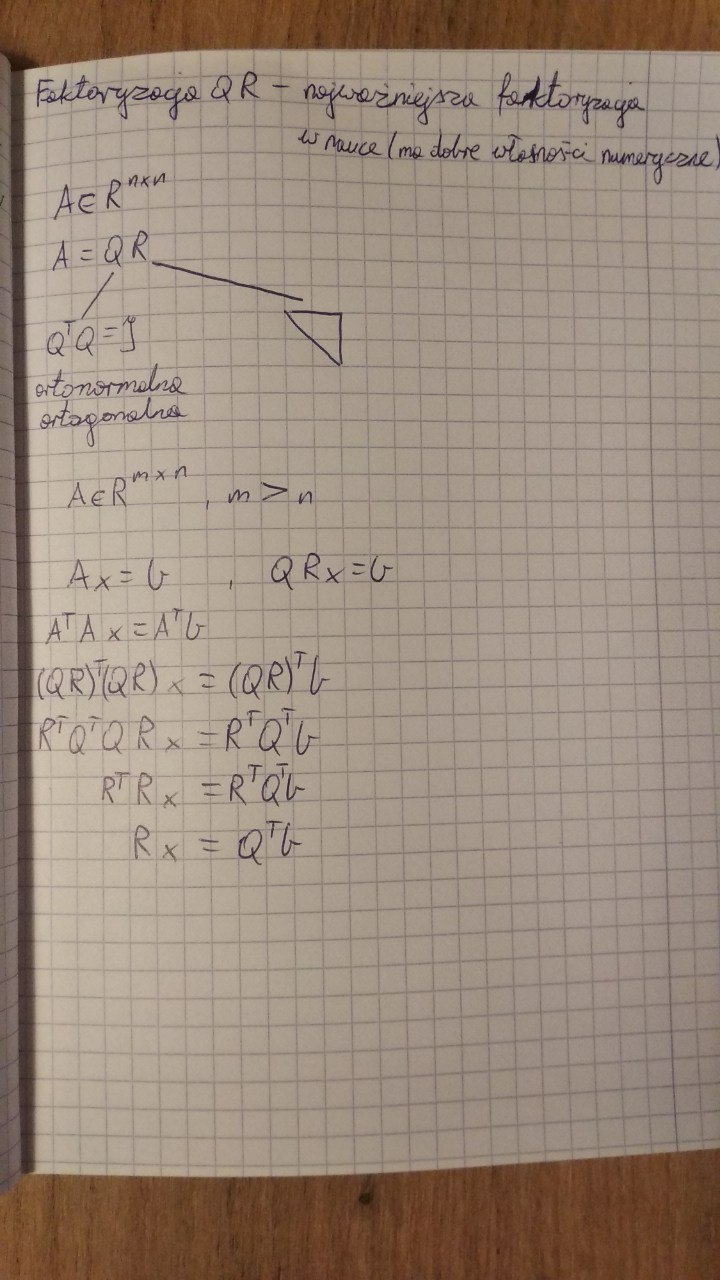 Faktoryzacja QR – najważniejsza faktoryzacja
w nauce (ma dobre własności numeryczne)
A ∈ R^{n×n}
A = QR
Q^T Q = I
ortonormalna
ortogonalna
A ∈ R^{m×n}, m > n
Ax = b, QRx = b
A^T A x = A^T b
(QR)^T (QR) x = (QR)^T b
R^T Q^T Q R x = R^T Q^T b
R^T R x = R^T Q^T b
R x = Q^T b